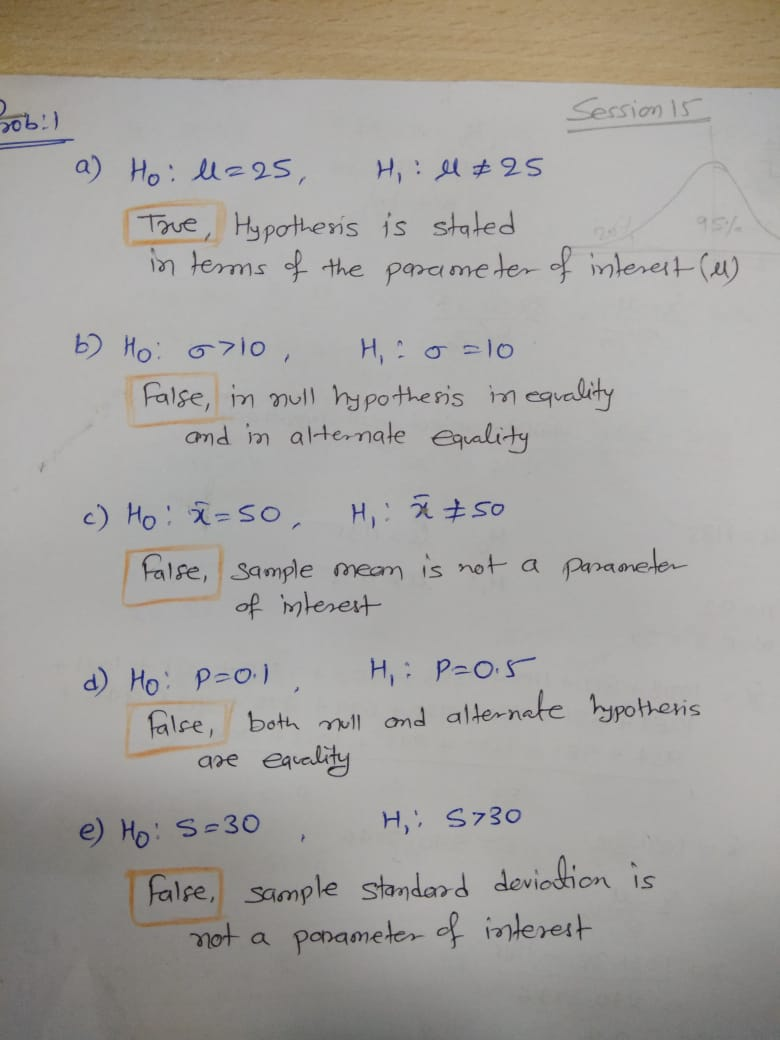 Session 15
rob:1
a) H₀: μ=25, H₁: μ≠25
True, Hypothesis is stated
in terms of the parameter of interest (μ)
95%
b) H₀: σ>10, H₁: σ=10
False, in null hypothesis inequality
and in alternate equality
c) H₀: x̄=50, H₁: x̄≠50
False, sample mean is not a parameter
of interest
d) H₀: P=0.1, H₁: P=0.5
False, both null and alternate hypothesis
are equality
e) H₀: S=30, H₁: S>30
False, sample standard deviation is
not a parameter of interest